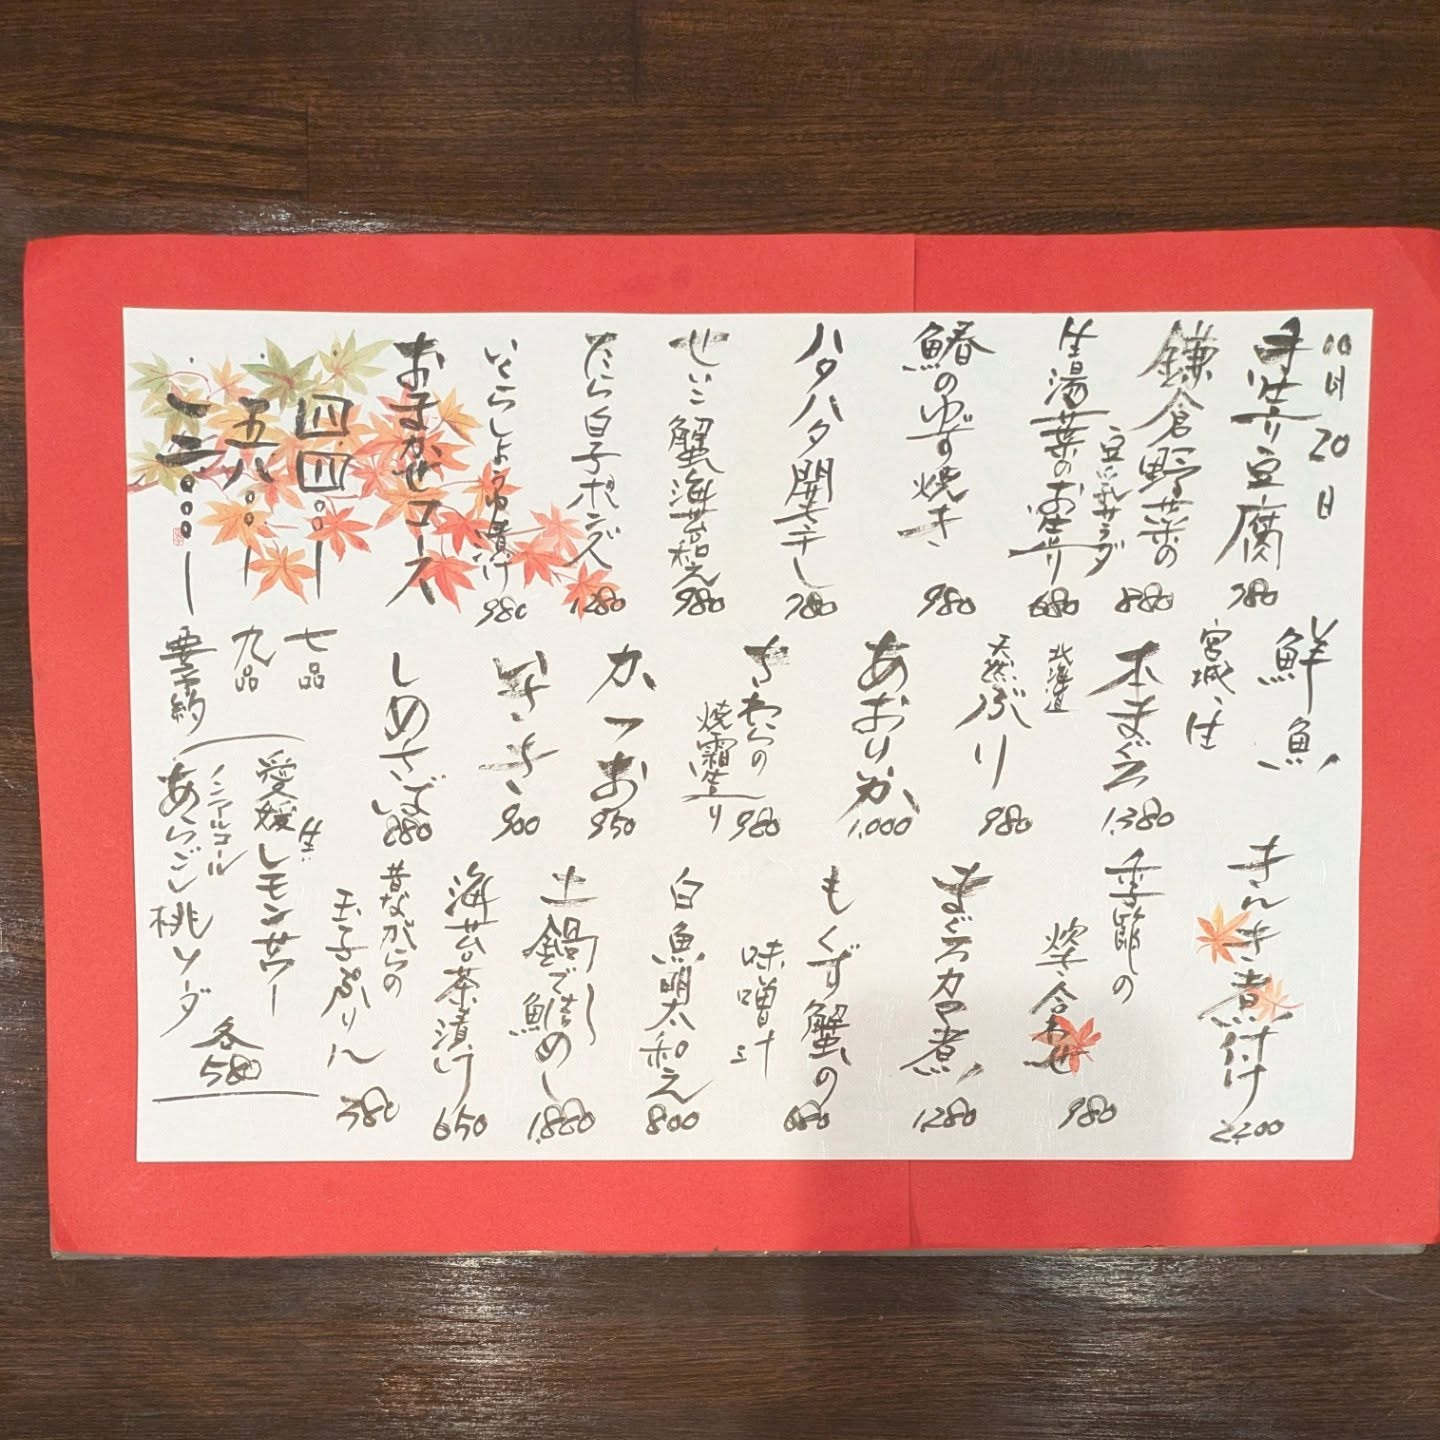 20日
手造り豆腐 780
鎌倉野菜の
豆乳サラダ 880
生湯葉のお造り 680
鰆のゆず焼き 980
ハタハタ開き干し 780
せいこ蟹海苔和え 980
たら白子ポン酢 1,280
いくらしょうゆ漬け 980
おまかせコース
四四〇〇ー 七品
五八〇〇ー 九品
要予約
鮮魚
宮城、生
本まぐろ 1,380
北海道
天然ぶり 980
あおりいか 1,000
さわらの
焼霜造り 980
かつお 950
いさき 900
しめさば 880
きんき煮付け 2,200
季節の
炊き合わせ 980
まぐろカマ煮 1,280
もくず蟹の
味噌汁 680
白魚明太和え 800
土鍋で
鯛めし 1,880
海苔茶漬け 650
昔ながらの
玉子ぷりん 380
愛媛生レモンサワー
ノンアルコール
あらごし桃ソーダ
各580